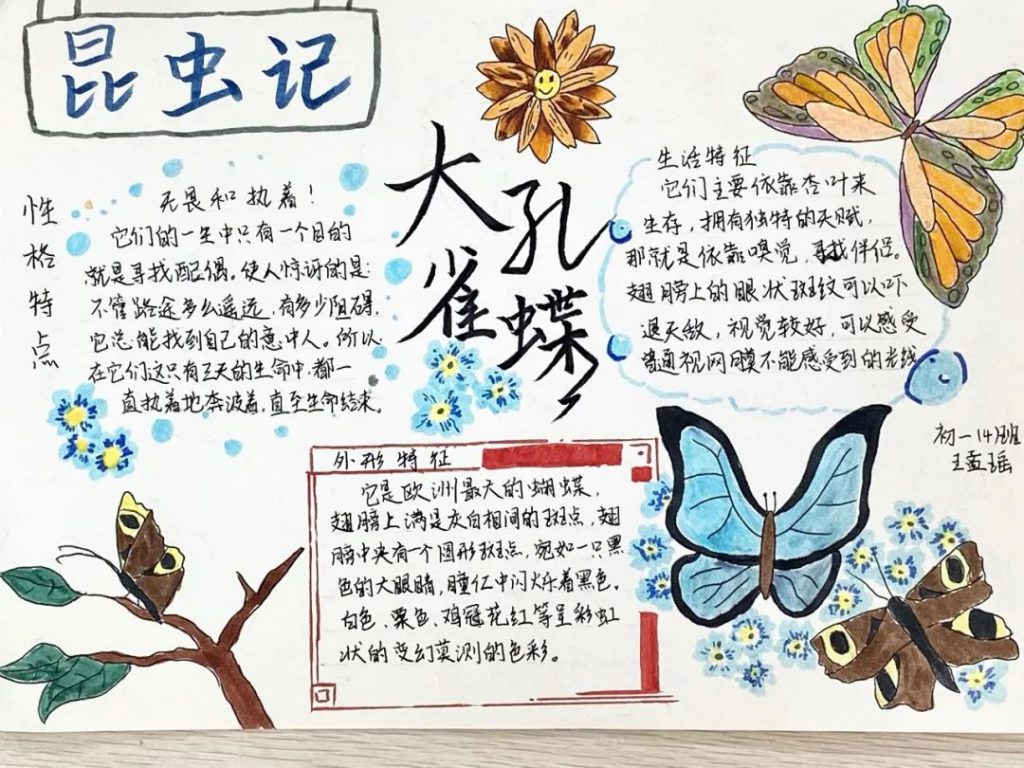 昆虫记
大孔
雀蝶
性格特点
无畏和执着！
它们的一生中只有一个目的
就是寻找配偶。使人惊讶的是
不管路途多么遥远，有多少阻碍，
它总能找到自己的意中人。所以
在它们这只有三天的生命中，都一
直执着地奔波着，直至生命结束。
生活特征
它们主要依靠杏叶来
生存，拥有独特的天赋，
那就是依靠嗅觉，寻找伴侣。
翅膀上的眼状斑纹可以吓
退天敌，视觉较好，可以感受
普通视网膜不能感受到的光线
初一14班
外形特征
它是欧洲最大的蝴蝶，
翅膀上满是灰白相间的斑点，翅
膀中央有一个圆形斑点，宛如一只黑
色的大眼睛，瞳仁中闪烁着黑色。
白色、栗色、鸡冠花红等呈彩虹
状的变幻莫测的色彩。